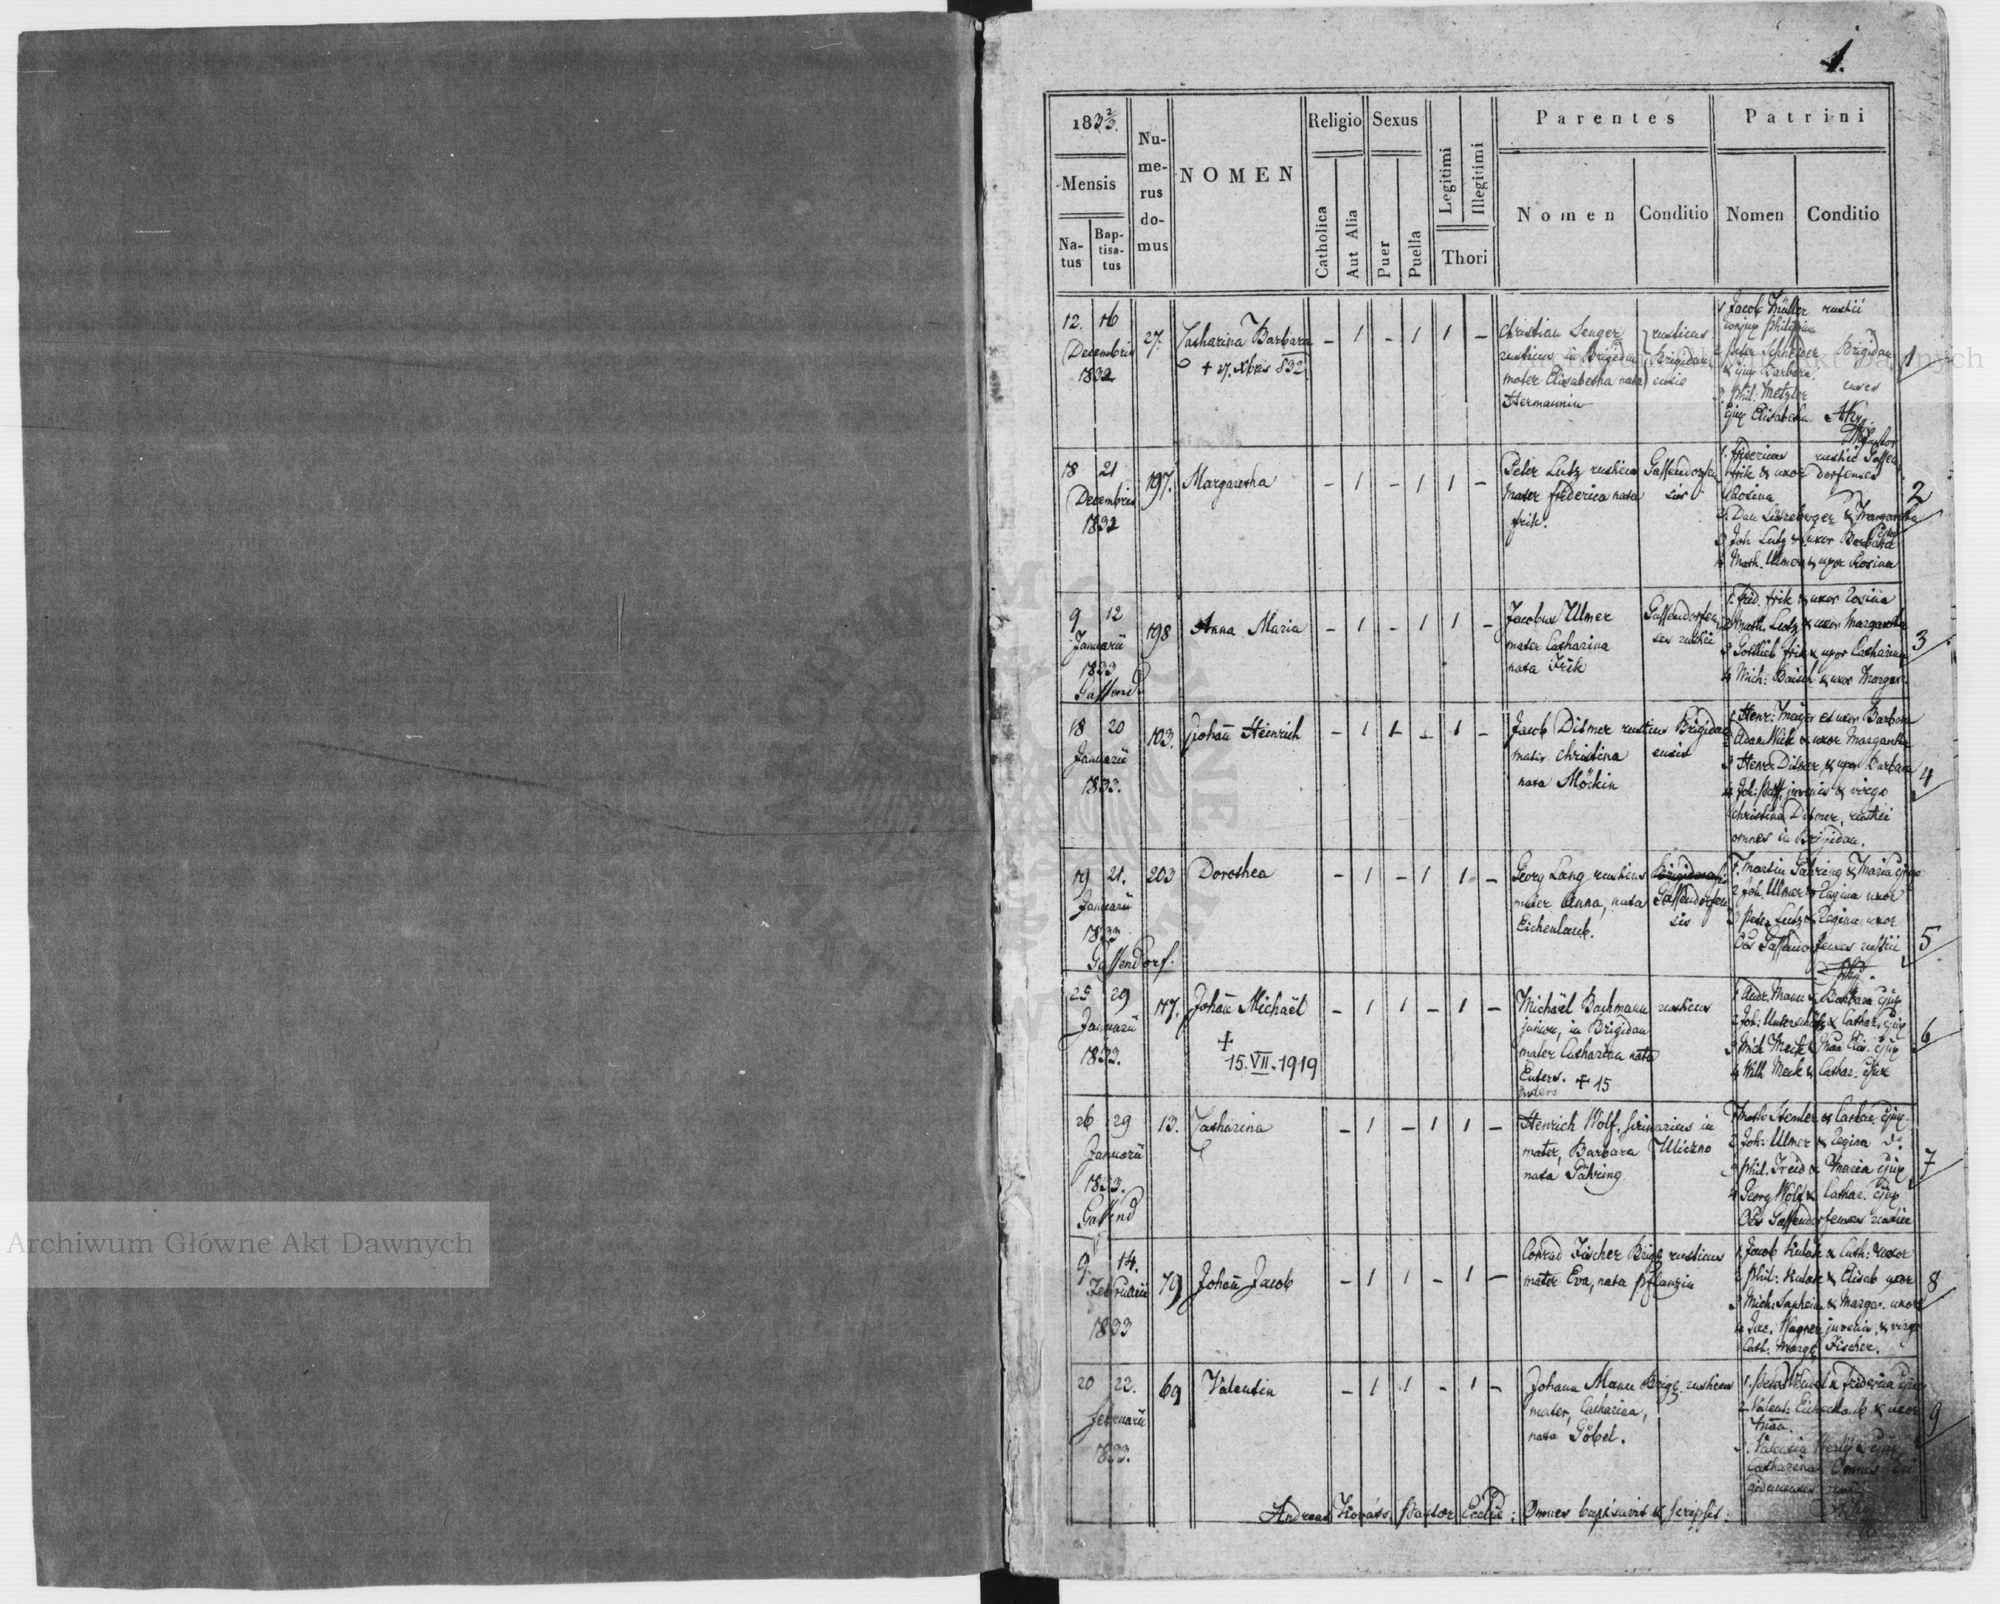 1.
1832/3.
Mensis
Na-
tus
Bap-
tisa-
tus
Nu-
me-
rus
do-
mus
NOMEN
Religio
Catholica
Aut Alia
Sexus
Puer
Puella
Legitimi
Illegitimi
Thori
Parentes
Nomen
Conditio
Patrini
Nomen
Conditio
12. 16
Decembris
1832
27.
Catharina Barbara
+ 27. Xbris 832
– 1 – 1 1 –
Christian Senger
rusticus in Brigidau
mater Elisabetha nata
Hermannin
rusticus
Brigidau
ensis
1 Jacob Müller rustici
conjux Philippina
2 Peter Schneider Brigidau
& ejux Barbara.
3. Phil: Metzler enses
ejux Elisabetha.
1
18 21
Decembris
1832
197.
Margaretha
– 1 – 1 1 –
Peter Lutz rusticus
mater friderica nata
frik.
Gassendorfen
sis
1. fridericus rustici Gassen
frik & uxor dorfenses
Rosina
3 Joh Lutz & uxor Barbara
4 Math. Ulmer & uxor Rosina
2
9 12
Januarii
1833
Gassend.
198
Anna Maria
– 1 – 1 1 –
Jacobus Ulmer
mater Catharina
nata Frik
Gassendorfen
ses rustici
1. frid. frik & uxor Rosina
2 Math. Lutz & uxor Margaretha
3 Gottlieb frik & uxor Catharina
4 Mich: Baisch & uxor Margar.
3
18 20
Januarii
1833.
103.
Johañ Heinrich
– 1 1 – 1 –
Jacob Ditmer rusticus
mater Christina
nata Möckin
Brigidau
ensis
1 Henr: Mayer et uxor Barbara
2 Adam Wick & uxor Margaretha
3 Henr: Ditmer, & uxor Barbara
4 Joh: Paff, juvenis & virgo
Christina Ditmer, rustici
omnes in Brigidau.
4
19 21.
Januarii
1833
Gassendorf.
203
Dorothea
– 1 – 1 1 –
Georg Lang rusticus
mater Anna, nata
Eichenlaub.
Gassendorfen
sis
1. Martin Gähring & Maria ejux
2 Joh. Ulmer & Regina uxor
3 Peter Lutz & Regina uxor
Oes Gassendorfenses rustici
5
25 29
Januarii
1833.
77.
Johañ Michaël
+
15.VII.1919
– 1 1 – 1 –
Michaël Bachmann rusticus
junior, in Brigidau
mater Catharina nata
Enters. + 15
1 Andr. Mann & Barbara ejux
2 Joh: Unterschütz & Cathar. ejux
3 Mich Meck & Mar Elis. ejux
4 Wilh Meck & Cathar. ejux
6
26 29
Januarii
1833.
Gassend
13.
Catharina
– 1 – 1 1 –
Henrich Wolf, scrinarius in
mater, Barbara Uliczno
nata Gähring
1 Math: Stemler & Cathar. ejux.
2 Joh: Ulmer & Regina do
3 Phil. Freid & Maria ejux
4 Georg Wolf & Cathar. ejux
Oes Gassendorfenses rustici
7
9. 14.
Februarii
1833
79
Johañ Jacob
– 1 1 – 1 –
Conrad Fischer Brig. rusticus
mater Eva, nata Pflanzin
1. Jacob Kulak & Cath: uxor
2 Phil: Kulak & Elisab uxor
3 Mich: Sapheim & Margar. uxor
4 Jac. Wagner juvenis, & virgo
Cath. Marg. Fischer.
8
20 22.
februarii
1833.
69
Valentin
– 1 1 – 1 –
Johann Mann Brig. rusticus
mater, Catharina,
nata Göbel.
2. Valent: Eichenlaub & uxor
9
Andreas Kovats Pastor Eccliæ: Omnes baptisavit & scripsit.
Archiwum Główne Akt Dawnych
Archiwum Główne Akt Dawnych